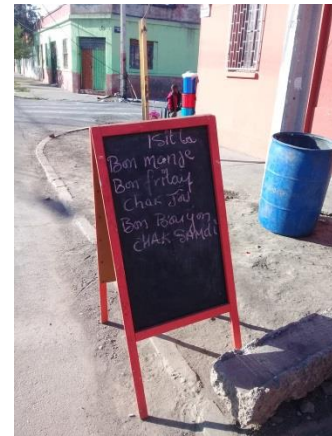 ISit La
Bon manje
Bon fritay
Chak Jou
Bon Bouyon
CHAK SAMdi